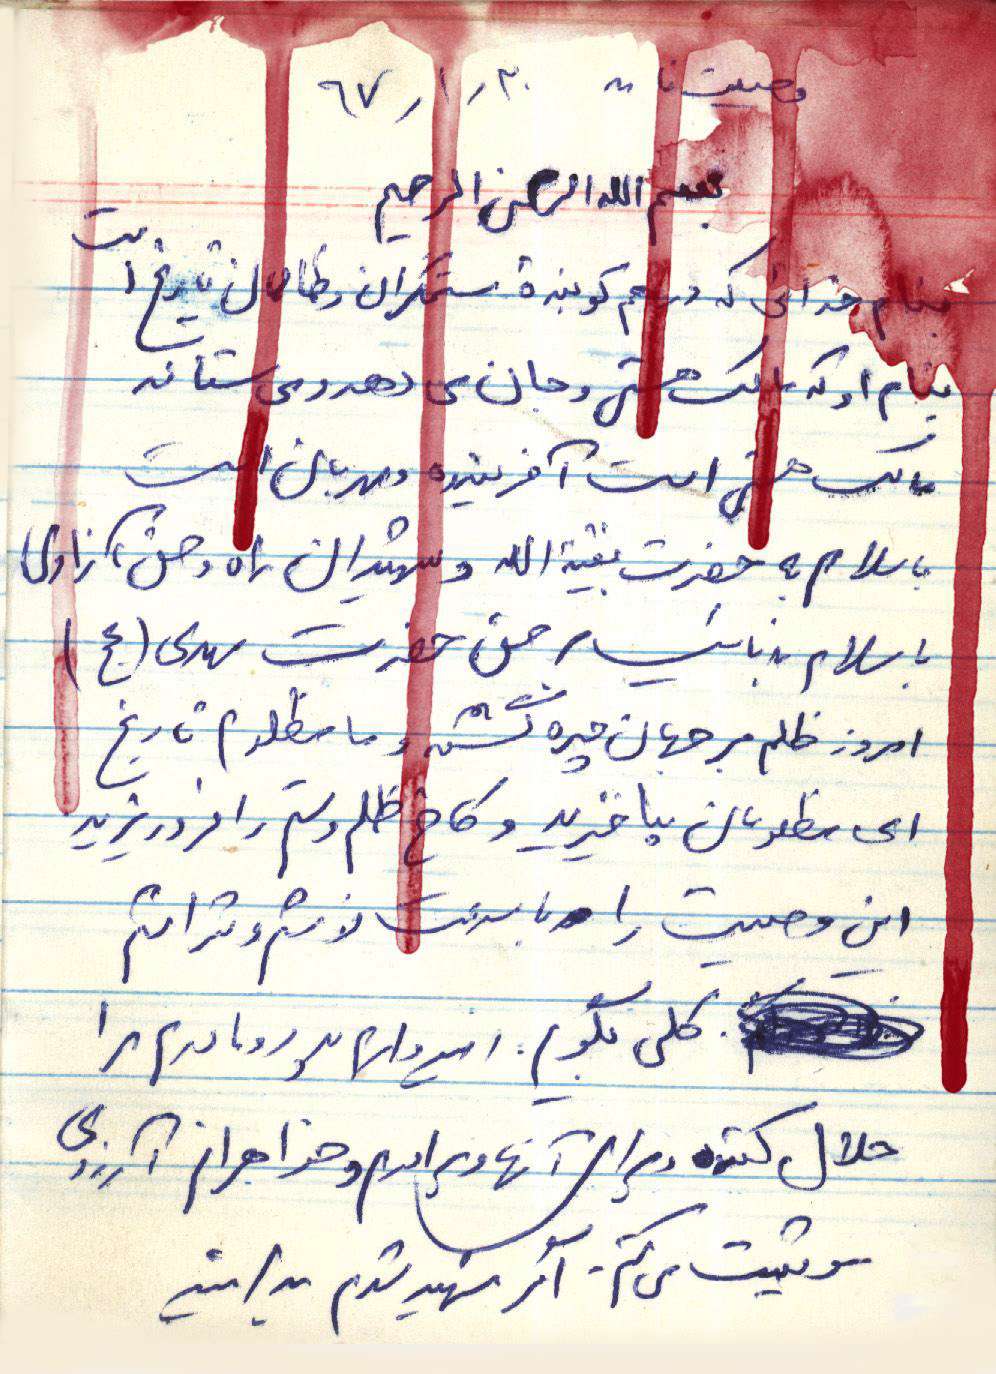 وصیت نامه ۲۰ ر ۱ ر ۶۷
بسم الله الرحمن الرحیم
بنام خدائی که درهم کوبنده ستمگران و ظالمان تاریخ است
بنام او که مالک هستی و جان می دهد و می ستاند
مالک هستی است آفریننده و مهربان است
با سلام به حضرت بقیة الله و شهیدان راه حق و آزادی
با سلام به نائب بر حق حضرت مهدی (عج)
امروز ظلم بر جهان چیره گشته و ما مظلوم تاریخ
ای مظلومان بپا خیزید و کاخ ظلم و ستم را فرو ریزید
این وصیت را با سرعت نوشتم و نتوانستم
کلی بگویم. امیدوارم پدر و مادرم مرا
حلال کنند و برای آنها و برادرم و خواهرانم آرزوی
موفقیت می کنم. اگر شهید شدم